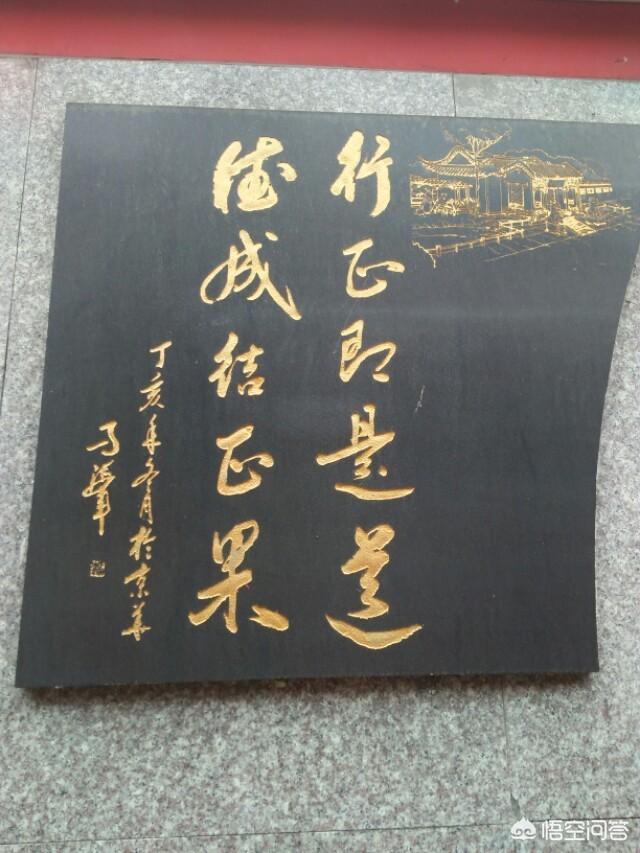 行正即是道
德成结正果
丁亥年冬月於京华
悟空问答